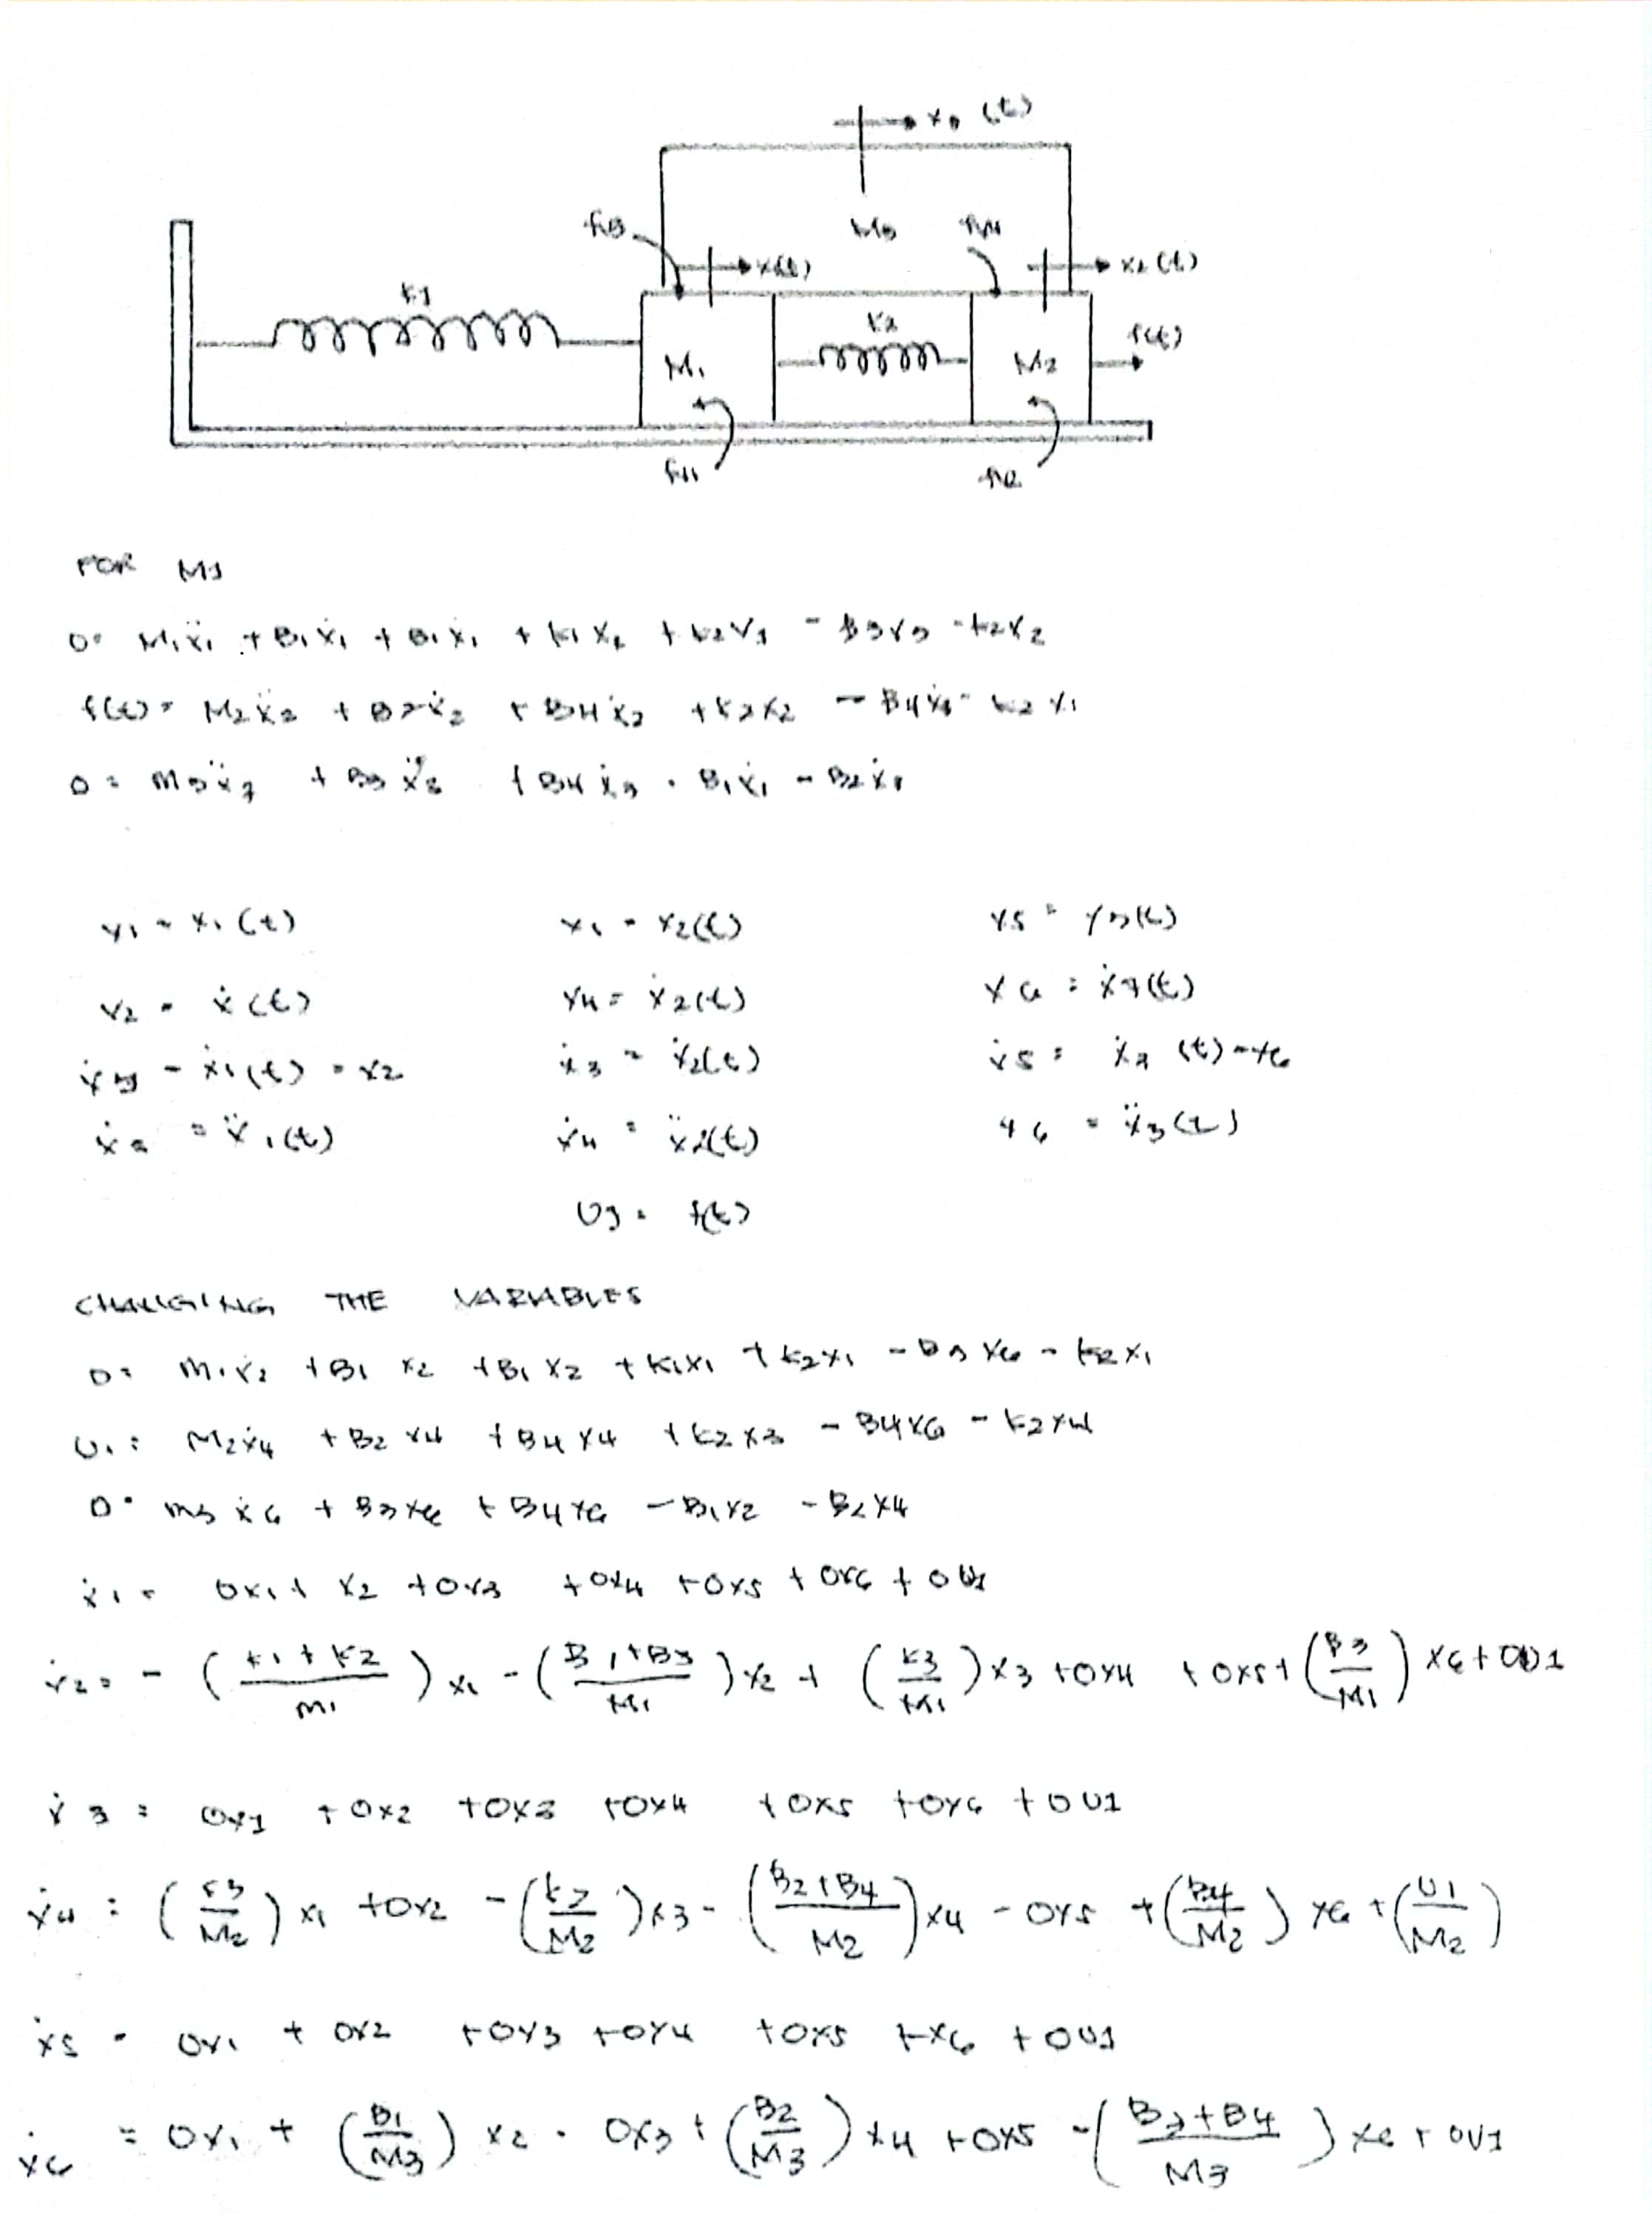 x₃ (t)
M3
x₂ (t)
K1
K2
f(t)
M₁
M₂
FOR M1
0 = M₁ẍ₁ + B₁ẋ₁ + B₁ẋ₁ + K₁X₁ + K₂X₁ - B3X3 - K2X2
f(t) = M2ẍ2 + B2ẋ2 + B4ẋ2 + K2X2 - B4ẋ3 - K2 X1
0 = M3ẍ3 + B3 ẋ3 + B4 ẋ3 - B₁ẋ₁ - B2ẋ2
x₁ = x₁(t)
x₁ = x2(t)
x5 = x3(t)
x2 = ẋ(t)
x4 = ẋ2(t)
x6 = ẋ3(t)
ẋ1 = ẋ₁(t) = x2
ẋ3 = ẋ2(t)
ẋ5 = ẋ3 (t) = x6
ẋ2 = ẍ₁(t)
ẋ4 = ẍ2(t)
x6 = ẍ3(t)
U1 = f(t)
CHANGING THE VARIABLES
0 = M₁ẋ2 + B1 x2 + B1 x2 + K1X1 + K2X1 - B3 X6 - K2X1
U₁ = M2ẋ4 + B2 X4 + B4 X4 + K2 X3 - B4X6 - K2X4
0 = M3 ẋ6 + B3X6 + B4X6 - B1X2 - B2X4
ẋ1 = 0X1 + X2 + 0X3 + 0X4 + 0X5 + 0X6 + 0U1
ẋ2 = - (K1 + K2 / M1) X1 - (B1 + B3 / M1) X2 + (K3 / M1) X3 + 0X4 + 0X5 + (B3 / M1) X6 + 0U1
ẋ3 = 0X1 + 0X2 + 0X3 + 0X4 + 0X5 + 0X6 + 0U1
ẋ4 = (K3 / M2) X1 + 0X2 - (K2 / M2) X3 - (B2 + B4 / M2) X4 - 0X5 + (B4 / M2) X6 + (U1 / M2)
ẋ5 = 0X1 + 0X2 + 0X3 + 0X4 + 0X5 + X6 + 0U1
ẋ6 = 0X1 + (B1 / M3) X2 . 0X3 + (B2 / M3) X4 + 0X5 - (B3 + B4 / M3) X6 + 0U1